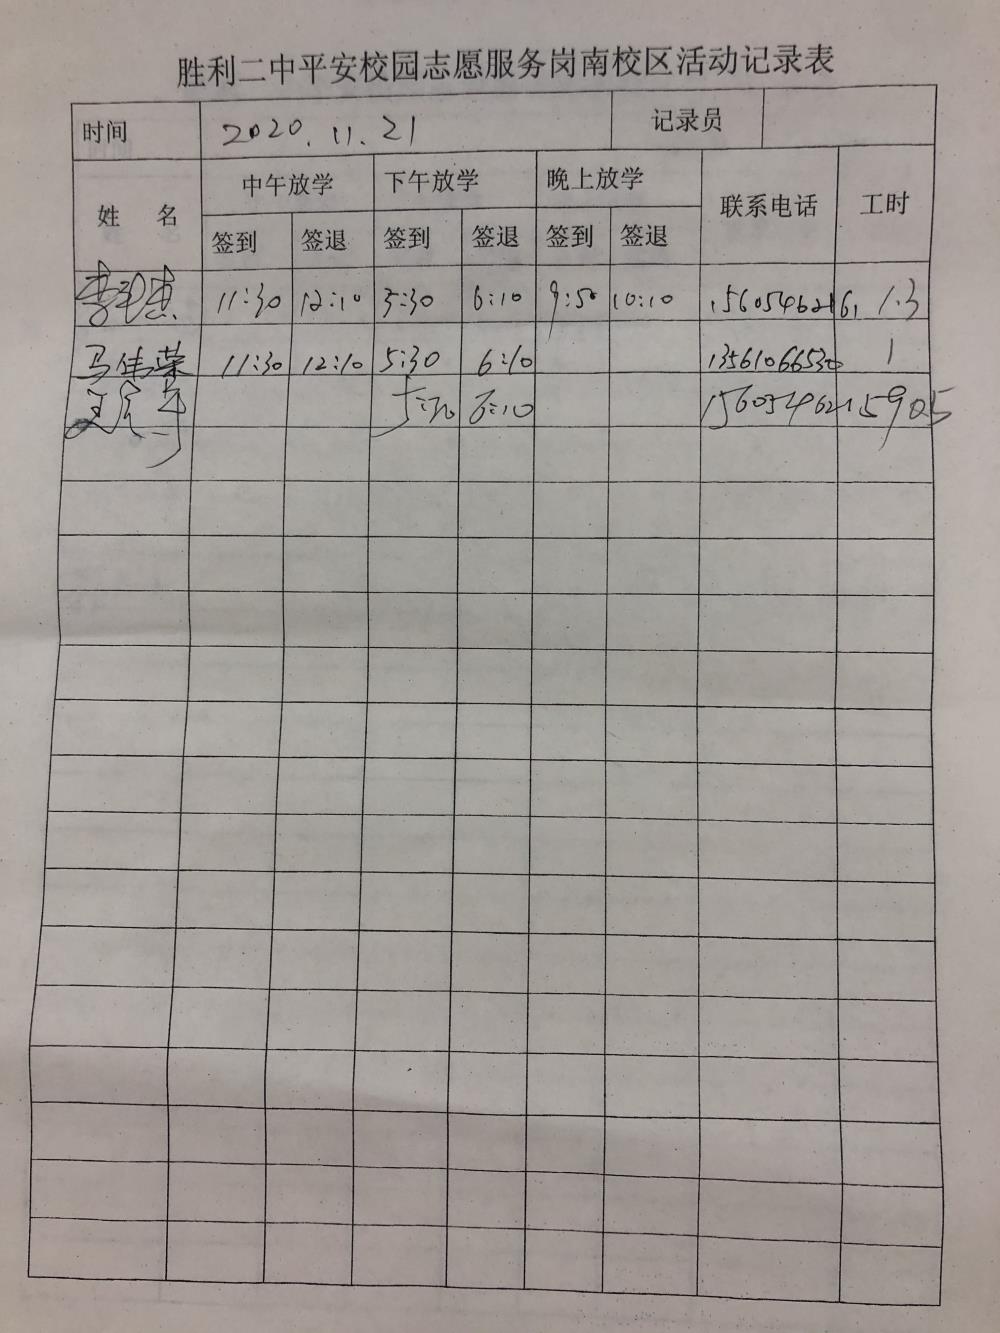 胜利二中平安校园志愿服务岗南校区活动记录表
时间 2020.11.21 记录员
姓 名 中午放学 下午放学 晚上放学 联系电话 工时
签到 签退 签到 签退 签到 签退
11:30 12:10 5:30 6:10 9:50 10:10 1.3
马伟荣 11:30 12:10 5:30 6:10 13561066530 1
6:10